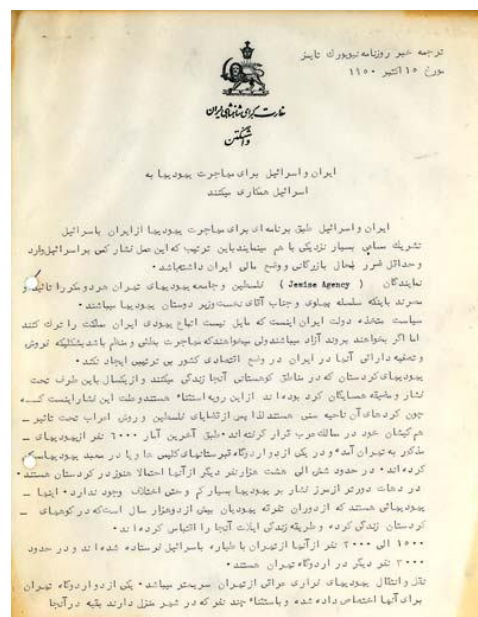 ترجمه خبر روزنامه نیویورك تایمز
مورخ ۱۵ اکتبر ۱۹۵۰
سفارت کبرای شاهنشاهی ایران
واشنگتن
ایران و اسرائیل برای مهاجرت یهودیها به
اسرائیل همکاری میکنند
ایران و اسرائیل طبق برنامه ای برای مهاجرت یهودیها از ایران باسرائیل
تشریك مساعی بسیار نزدیکی با هم مینمایند باین ترتیب که این عمل فشار کمی بر اسرائیل وارد
و حداقل ضرر بحال بازرگانی و وضع مالی ایران داشته باشد ۰
نمایندگان ( Jewise Agency ) فلسطین و جامعه یهودیهای تهران هر دو مکرر تائید و
مصرند باینکه سلسله پهلوی و جناب آقای نخست وزیر دوستان یهودیها میباشند ۰
سیاست متخذه دولت ایران اینست که مایل نیست اتباع یهودی ایران مملکت را ترك کنند
اما اگر بخواهند بروند آزاد میباشند ولی میخواهند که مهاجرت بطئی و منظم باشد بشکلیکه فروش
و تصفیه دارائی آنها در ایران در وضع اقتصادی کشور بی ترتیبی ایجاد نکند ۰
یهودیهای کردستان که در مناطق کوهستانی آنجا زندگی میکنند و از یکسال باین طرف تحت
فشار و مضیقه همسایگان کرد بوده اند از این رویه استثناء هستند و علت این فشار اینست که
چون کردهای آن ناحیه سنی هستند لذا پس از قضایای فلسطین و روش اعراب تحت تاثیر ــ
هم کیشان خود در ممالك عرب قرار گرفته اند ۰ طبق آخرین آمار ۶۰۰۰ نفر از یهودیهای ــ
مذکور به تهران آمده و در یکی از دو اردوگاه قبرستانهای کلیمی ها و یا در معبد یهودیها سکنی
کرده اند ۰ در حدود شش الی هشت هزار نفر دیگر از آنها احتمالا هنوز در کردستان هستند ۰
در دهات دورتر از مرز فشار بر یهودیها بسیار کم و حتی اختلاف وجود ندارد ۰ اینها ــ
یهودیهائی هستند که از دوران تفرقه یهودیان بیش از دو هزار سال است که در کوههای ــ
کردستان زندگی کرده و طریقه زندگی ایلات آنجا را اقتباس کرده اند ۰
۱۵۰۰ الی ۲۰۰۰ نفر از آنها از تهران با طیاره باسرائیل فرستاده شده اند و در حدود
۲۰۰۰ نفر دیگر در اردوگاه تهران هستند ۰
نقل و انتقال یهودیهای فراری عراقی از تهران سریعتر میباشد ۰ یکی از دو اردوگاه تهران
برای آنها اختصاص داده شده و باستثناء چند نفر که در شهر منزل دارند بقیه در آنجا